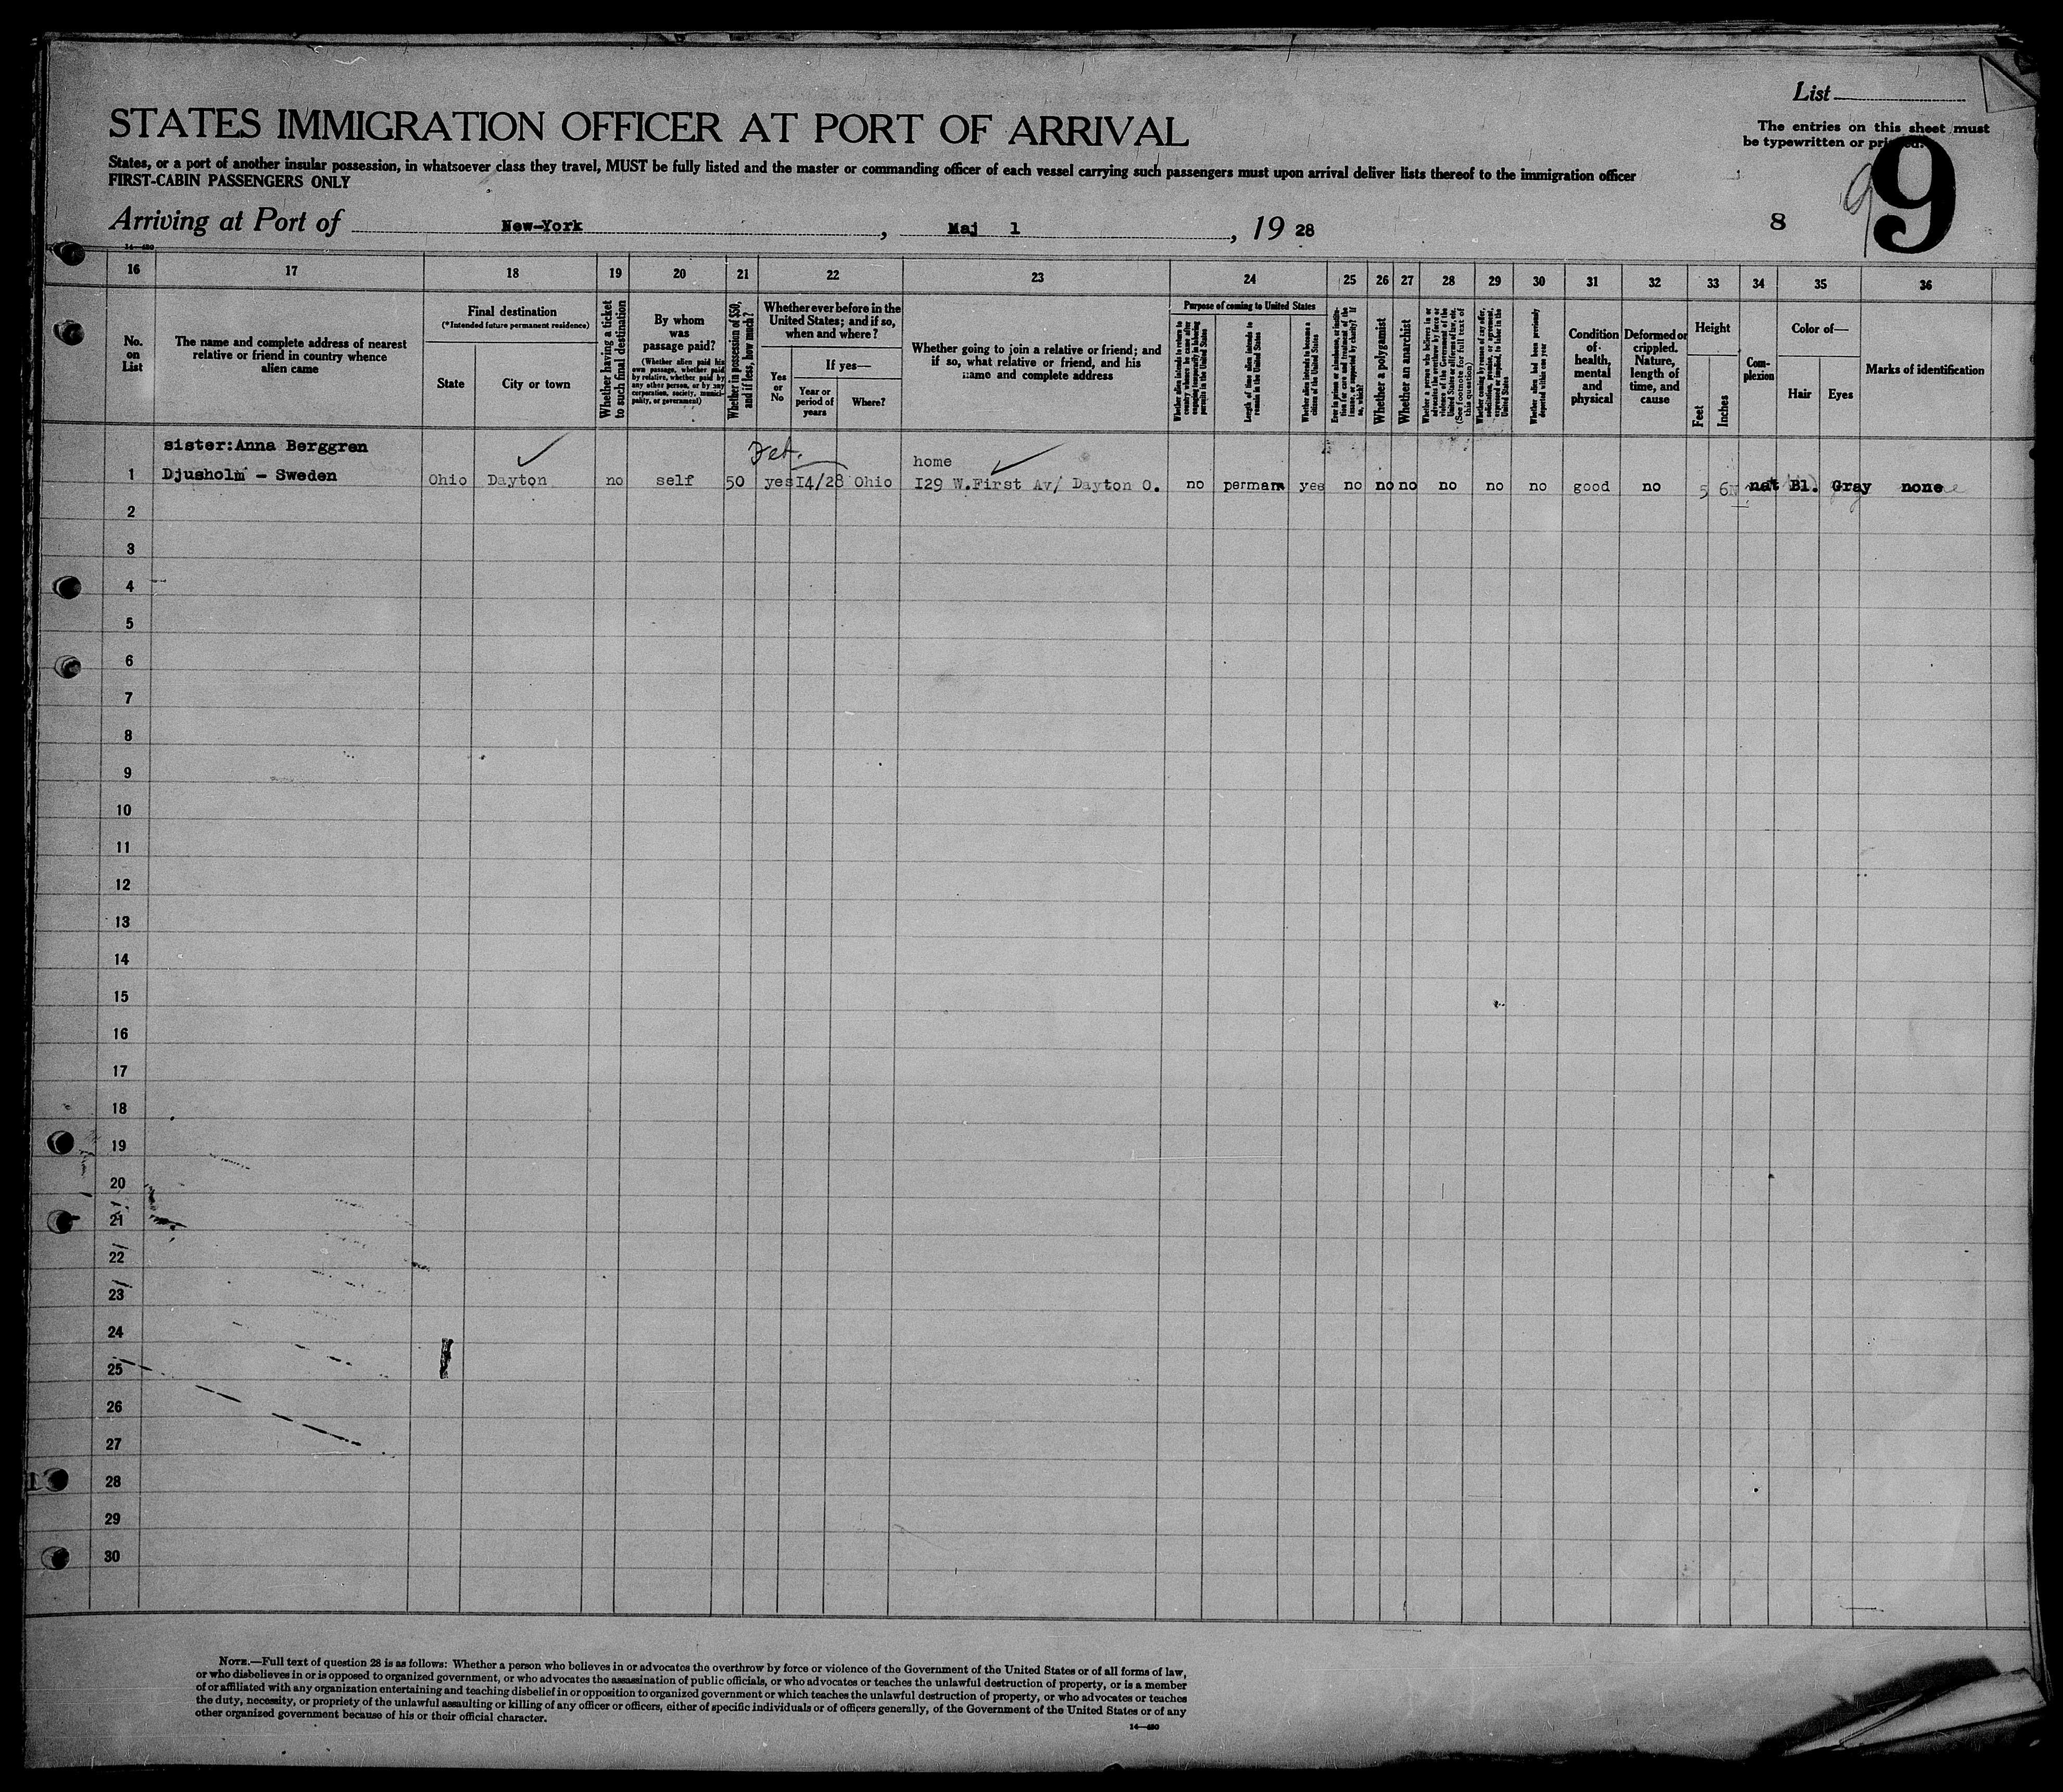 List
STATES IMMIGRATION OFFICER AT PORT OF ARRIVAL
The entries on this sheet must
be typewritten or printed.
States, or a port of another insular possession, in whatsoever class they travel, MUST be fully listed and the master or commanding officer of each vessel carrying such passengers must upon arrival deliver lists thereof to the immigration officer
FIRST-CABIN PASSENGERS ONLY
9 9
Arriving at Port of New-York, Maj 1, 19 28
8
14—480
16 17 18 19 20 21 22 23 24 25 26 27 28 29 30 31 32 33 34 35 36
No. on List
The name and complete address of nearest
relative or friend in country whence
alien came
Final destination
(*Intended future permanent residence)
State
City or town
Whether having a ticket
to such final destination
By whom
was
passage paid?
(Whether alien paid his
own passage, whether paid
by relative, whether paid by
any other person, or by any
corporation, society, munici-
pality, or government)
Whether in possession of $50,
and if less, how much?
Whether ever before in the
United States; and if so,
when and where?
Yes
or
No
If yes—
Year or
period of
years
Where?
Whether going to join a relative or friend; and
if so, what relative or friend, and his
name and complete address
Purpose of coming to United States
Whether alien intends to return to
country whence he came after
engaging temporarily in laboring
pursuits in the United States
Length of time alien intends to
remain in the United States
Whether alien intends to become a
citizen of the United States
Ever in prison or almshouse, or institu-
tion for care and treatment of the
insane, or supported by charity? If
so, which?
Whether a polygamist
Whether an anarchist
Whether a person who believes in or
advocates the overthrow by force or
violence of the Government of the
United States or all forms of law, etc.
(See footnote for full text of
this question)
Whether coming by reason of any offer,
solicitation, promise, or agreement,
expressed or implied, to labor in the
United States
Whether alien had been previously
deported within one year
Condition
of
health,
mental
and
physical
Deformed or
crippled.
Nature,
length of
time, and
cause
Height
Feet
Inches
Com-
plexion
Color of—
Hair
Eyes
Marks of identification
sister:Anna Berggren
1 Djusholm - Sweden Ohio Dayton no self 50 yes 14/28 Ohio
home
129 W.First Av/ Dayton O. no perman yes no no no no no no good no 5 6 nat Bl. Gray none
2
3
4
5
6
7
8
9
10
11
12
13
14
15
16
17
18
19
20
21
22
23
24
25
26
27
28
29
30
NOTE.—Full text of question 28 is as follows: Whether a person who believes in or advocates the overthrow by force or violence of the Government of the United States or of all forms of law,
or who disbelieves in or is opposed to organized government, or who advocates the assassination of public officials, or who advocates or teaches the unlawful destruction of property, or is a member
of or affiliated with any organization entertaining and teaching disbelief in or opposition to organized government or which teaches the unlawful destruction of property, or who advocates or teaches
the duty, necessity, or propriety of the unlawful assaulting or killing of any officer or officers, either of specific individuals or of officers generally, of the Government of the United States or of any
other organized government because of his or their official character.
14—480